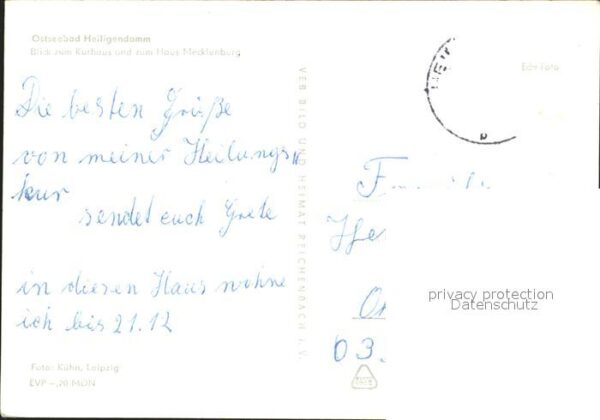 Ostseebad Heiligendamm
Blick zum Kurhaus und zum Haus Mecklenburg
Die besten Grüße
von meiner Heilungs
kur
sendet euch Grete
in diesen Haus wohne
ich bis 21.12
Foto: Kühn, Leipzig
EVP –,20 MDN
VEB BILD UND HEIMAT REICHENBACH I. V.
Echt Foto
F
03.
privacy protection
Datenschutz